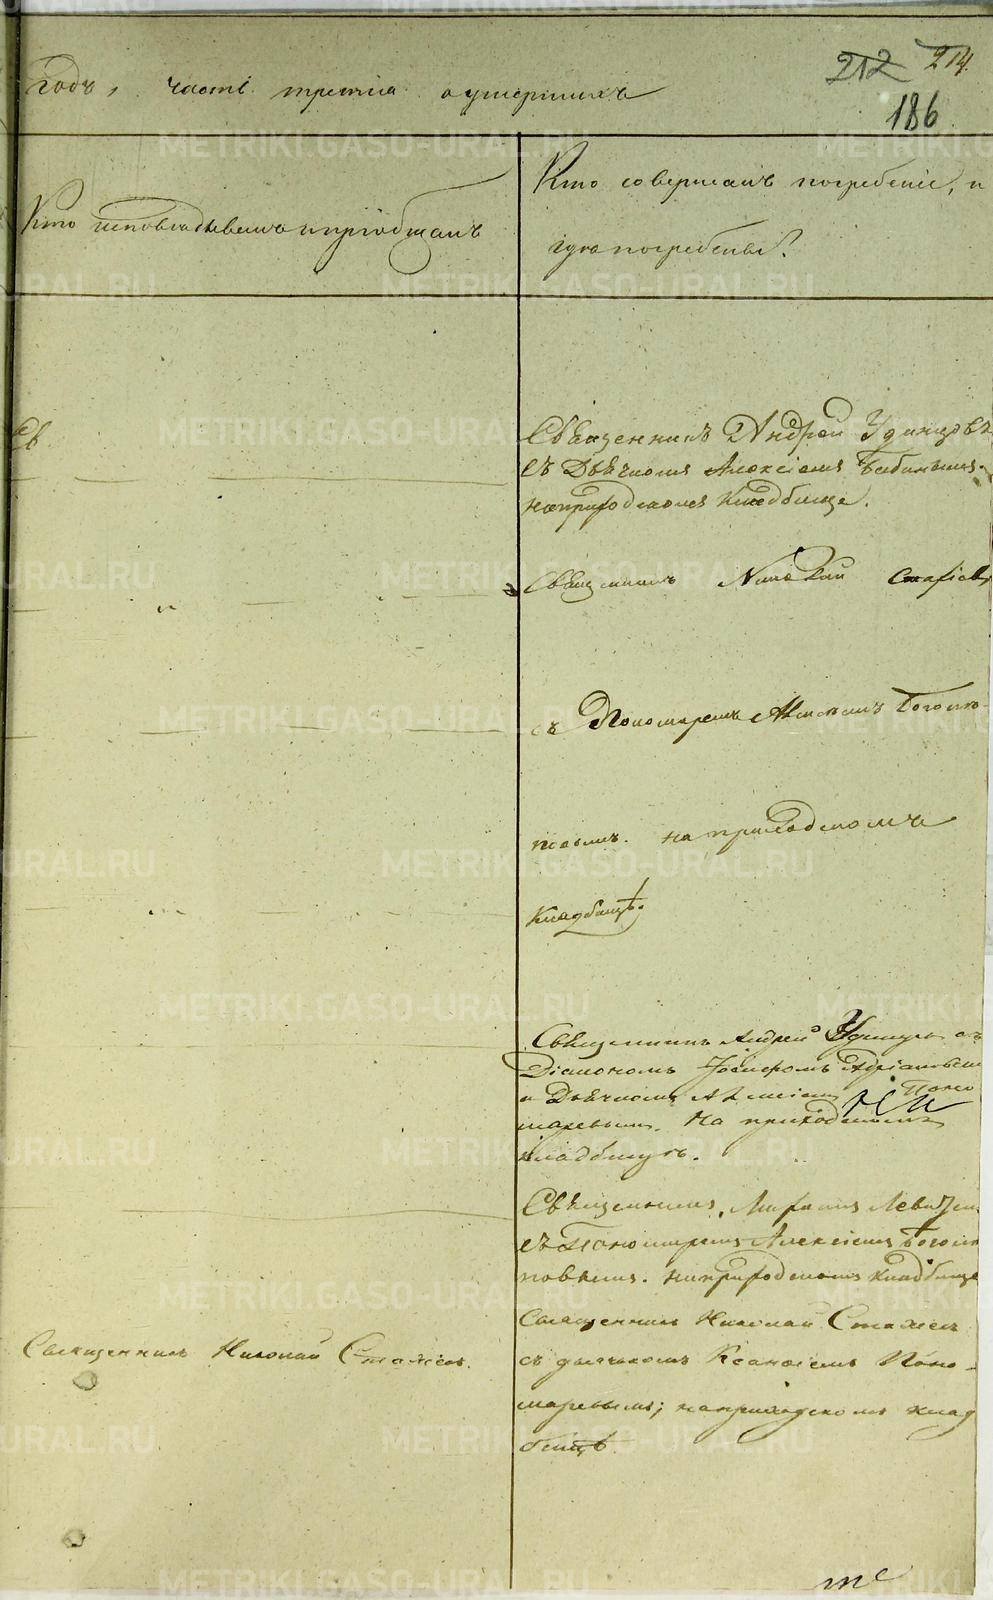 212 214
годъ, часть третія о умершихъ
186
Кто исповѣдывалъ и пріобщалъ
Кто совершалъ погребеніе, и
гдѣ погребены?
Св
Священникъ Андрей Удинцовъ
съ Дьячкомъ Алексіемъ
на приходскомъ кладбище.
Священникъ Николай Стахіевъ
съ Пономаремъ Алексіемъ Боголю-
повымъ. на приходскомъ
кладбищѣ.
Священникъ Андрей съ
Діакономъ Іосифомъ
и Дьячкомъ Алексіемъ Поно
маревымъ. На приходскомъ
кладбищѣ.
Священникъ
съ Пономаремъ Алексіемъ Боголю
повымъ. на приходскомъ кладбище
Священникъ Николай Стахіевъ.
Священникъ Николай Стахіевъ
съ дьячкомъ Поно-
маревымъ; на приходскомъ клад
бищѣ
те